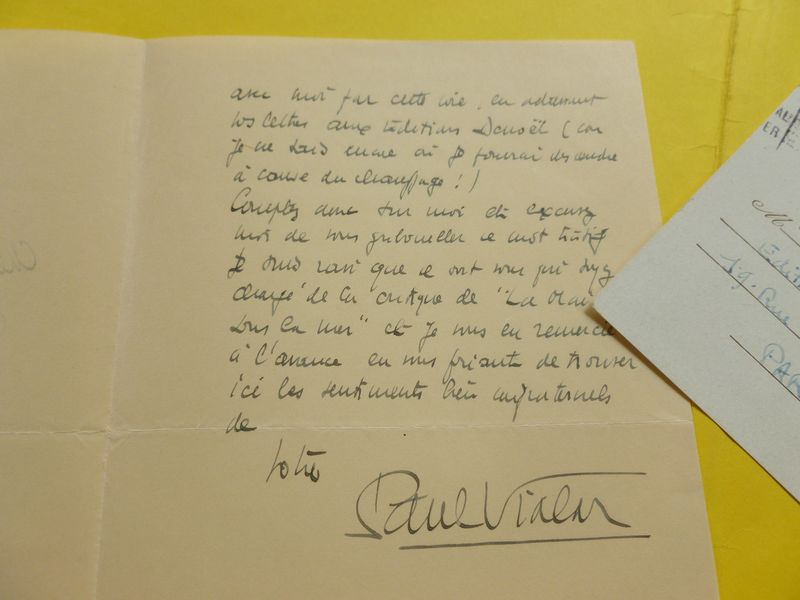 avec moi par cette voie, en adressant
vos lettres aux Editions Denoël (car
je ne sais encore où je pourrai descendre
à cause du chauffage !)
Comptez donc sur moi et excusez
moi de vous gribouiller ce mot hâtif
Je suis ravi que ce soit vous qui soyez
chargé de la critique de "La Maison
sous la mer" et je vous en remercie
à l'avance en vous priant de trouver
ici les sentiments bien confraternels
de
votre
Paul Vialar
ER
M
Editi
19. Rue
PAR